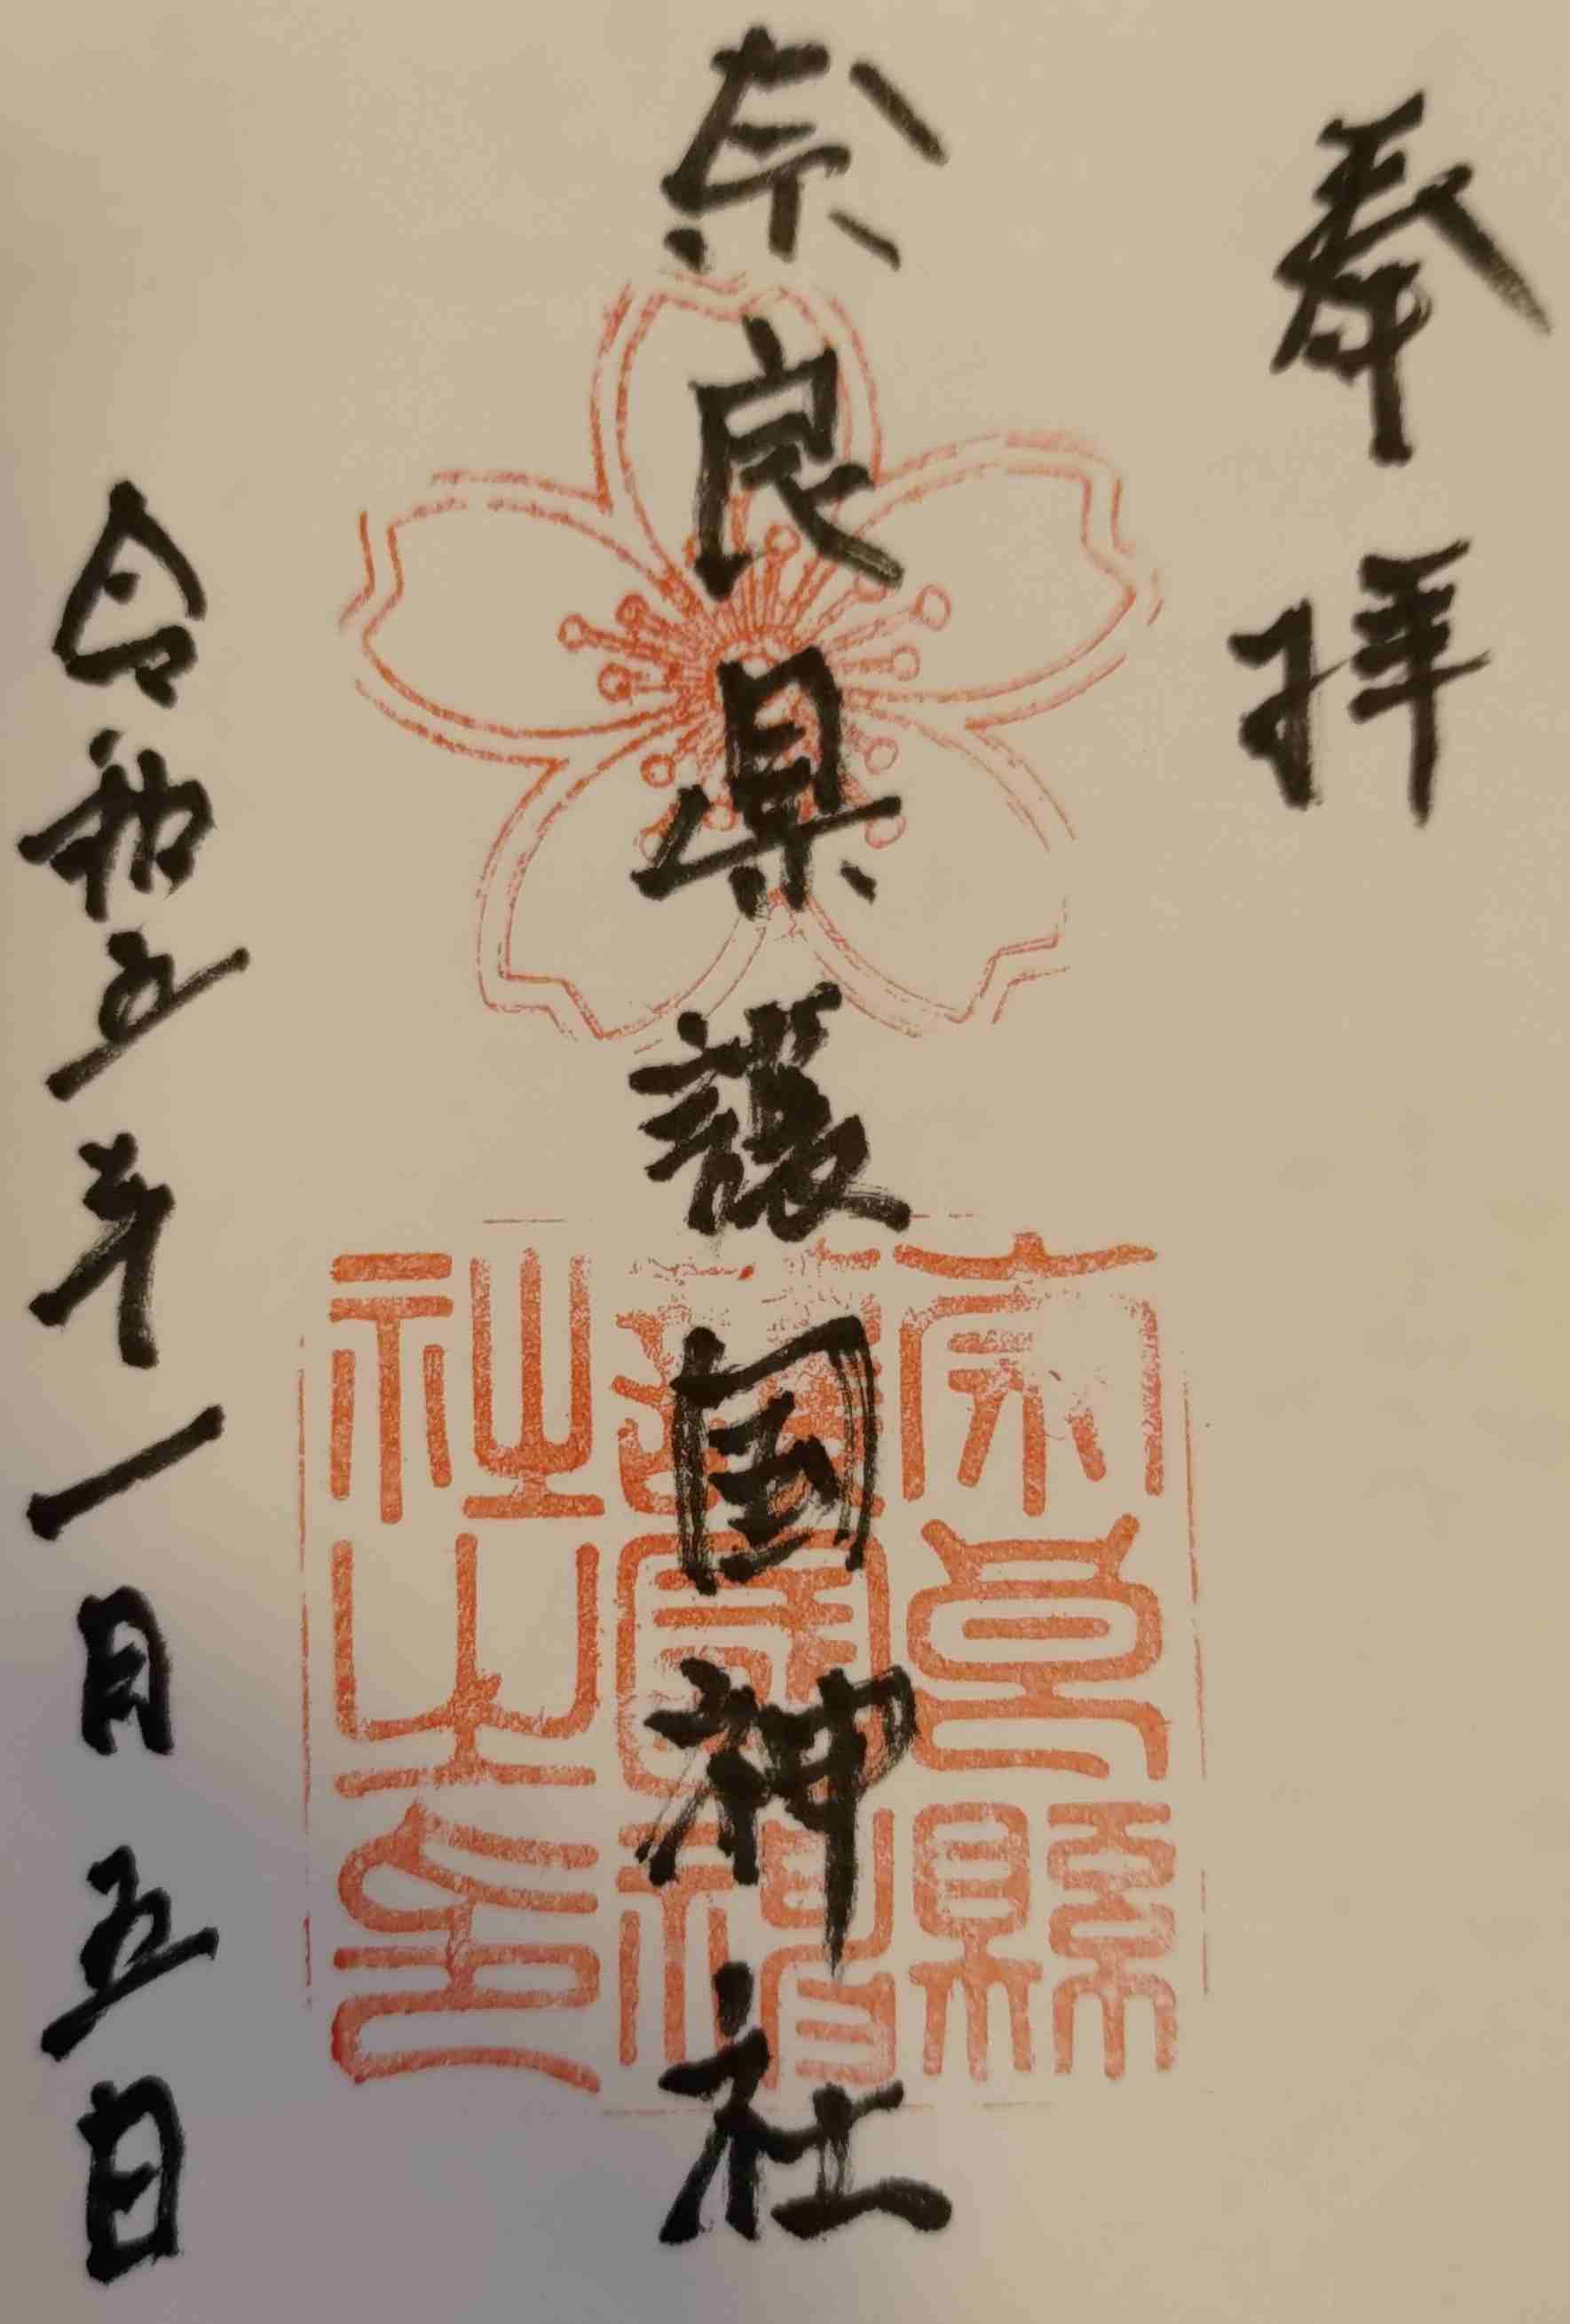 奉拝
奈良県護国神社
奈良縣
護國神
社之印
令和五年一月五日